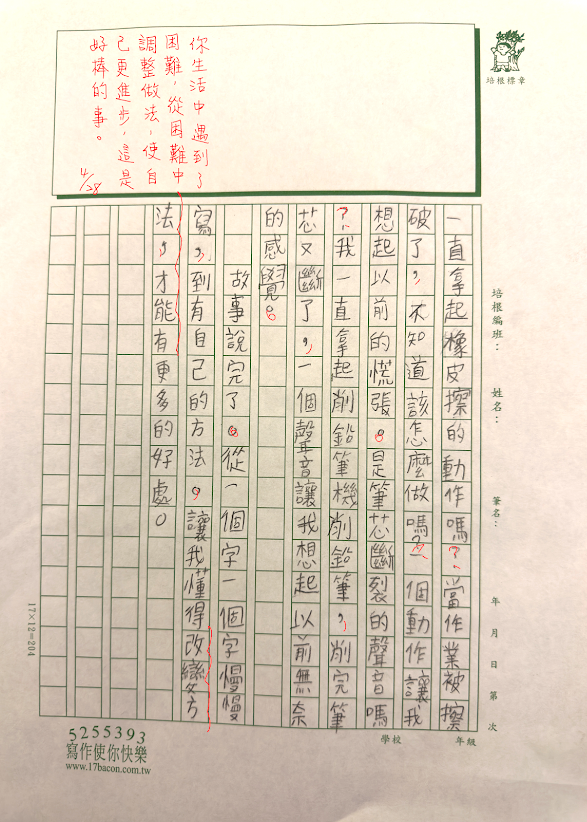 培根標章
你生活中遇到了
困難，從困難中
調整做法，使自
己更進步，這是
好棒的事。
4/28
培根編班：
姓名：
筆名：
年 月 日 第 次
一直拿起橡皮擦的動作嗎？當作業被擦
破了，不知道該怎麼做嗎？一個動作讓我
想起以前的慌張。是筆芯斷裂的聲音嗎
？我一直拿起削鉛筆機削鉛筆，削完筆
芯又斷了，一個聲音讓我想起以前無奈
的感覺。
故事說完了。從一個字一個字慢慢
寫，到有自己的方法。讓我懂得改變方
法，才能有更多的好處。
17×12=204
5255393
寫作使你快樂
www.17bacon.com.tw
學校
年級